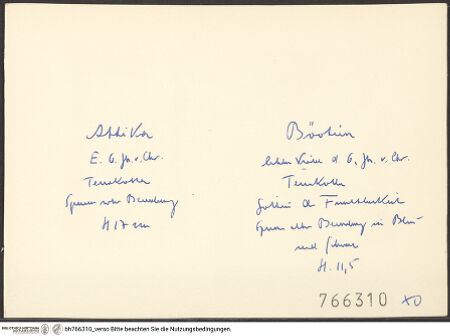 Attika
E. 6. Jh. v. Chr.
Terrakotta
Spuren roter Bemalung
H 17 cm
Böotien
letztes d. 6. Jh. v. Chr.
Terrakotta
Göttin der Fruchtbarkeit
Spuren alter Bemalung in Blau
und Schwarz
H. 11,5
766310 XO
bh766310_verso Bitte beachten Sie die Nutzungsbedingungen.